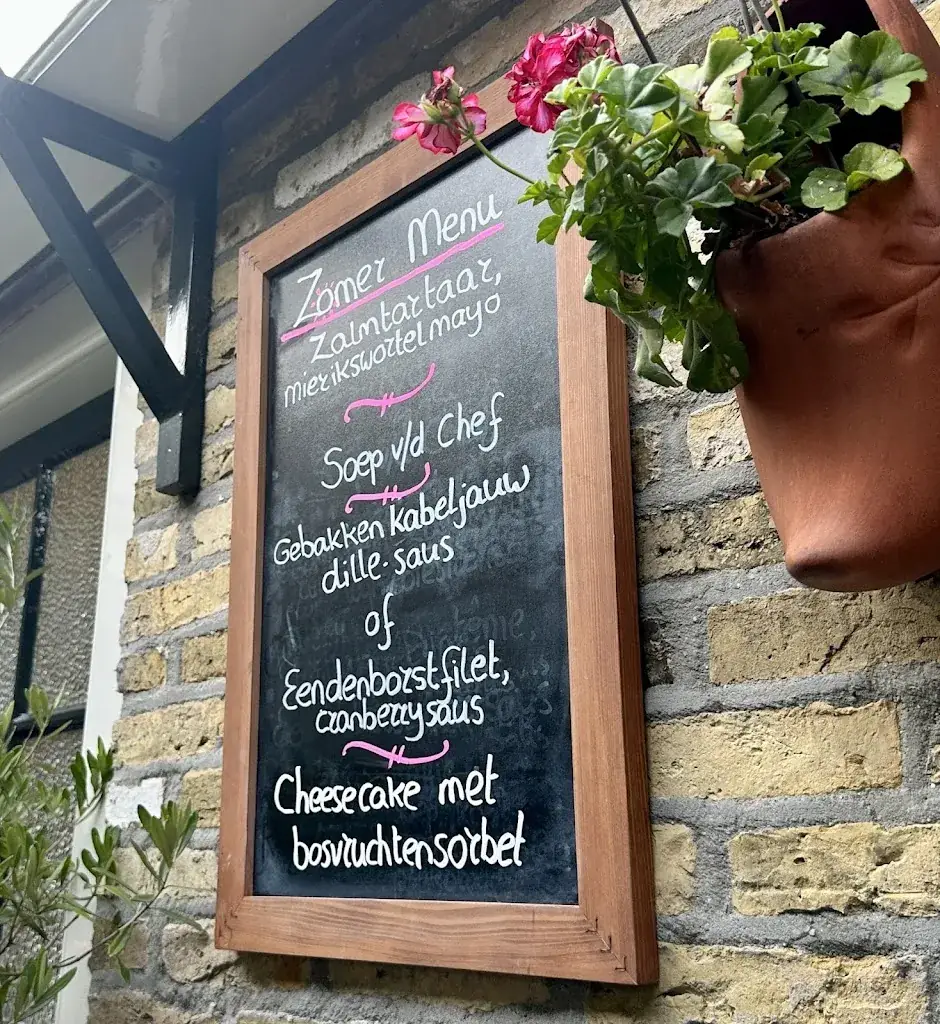 Zomer Menu
Zalmtartaar,
mierikswortelmayo
Soep v/d Chef
Gebakken kabeljauw
dille-saus
of
Eendenborstfilet,
cranberrysaus
Cheesecake met
bosvruchtensorbet